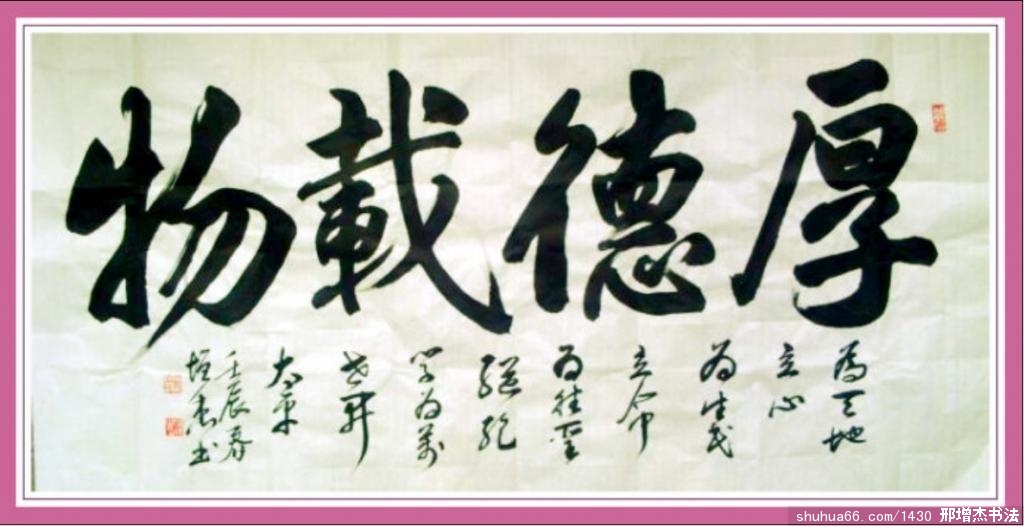 厚德載物
為天地
立心
为生民
立命
为往聖
繼絕
学为萬
世开
太平
壬辰春
增杰书
shuhua66.com/1430 邢增杰书法